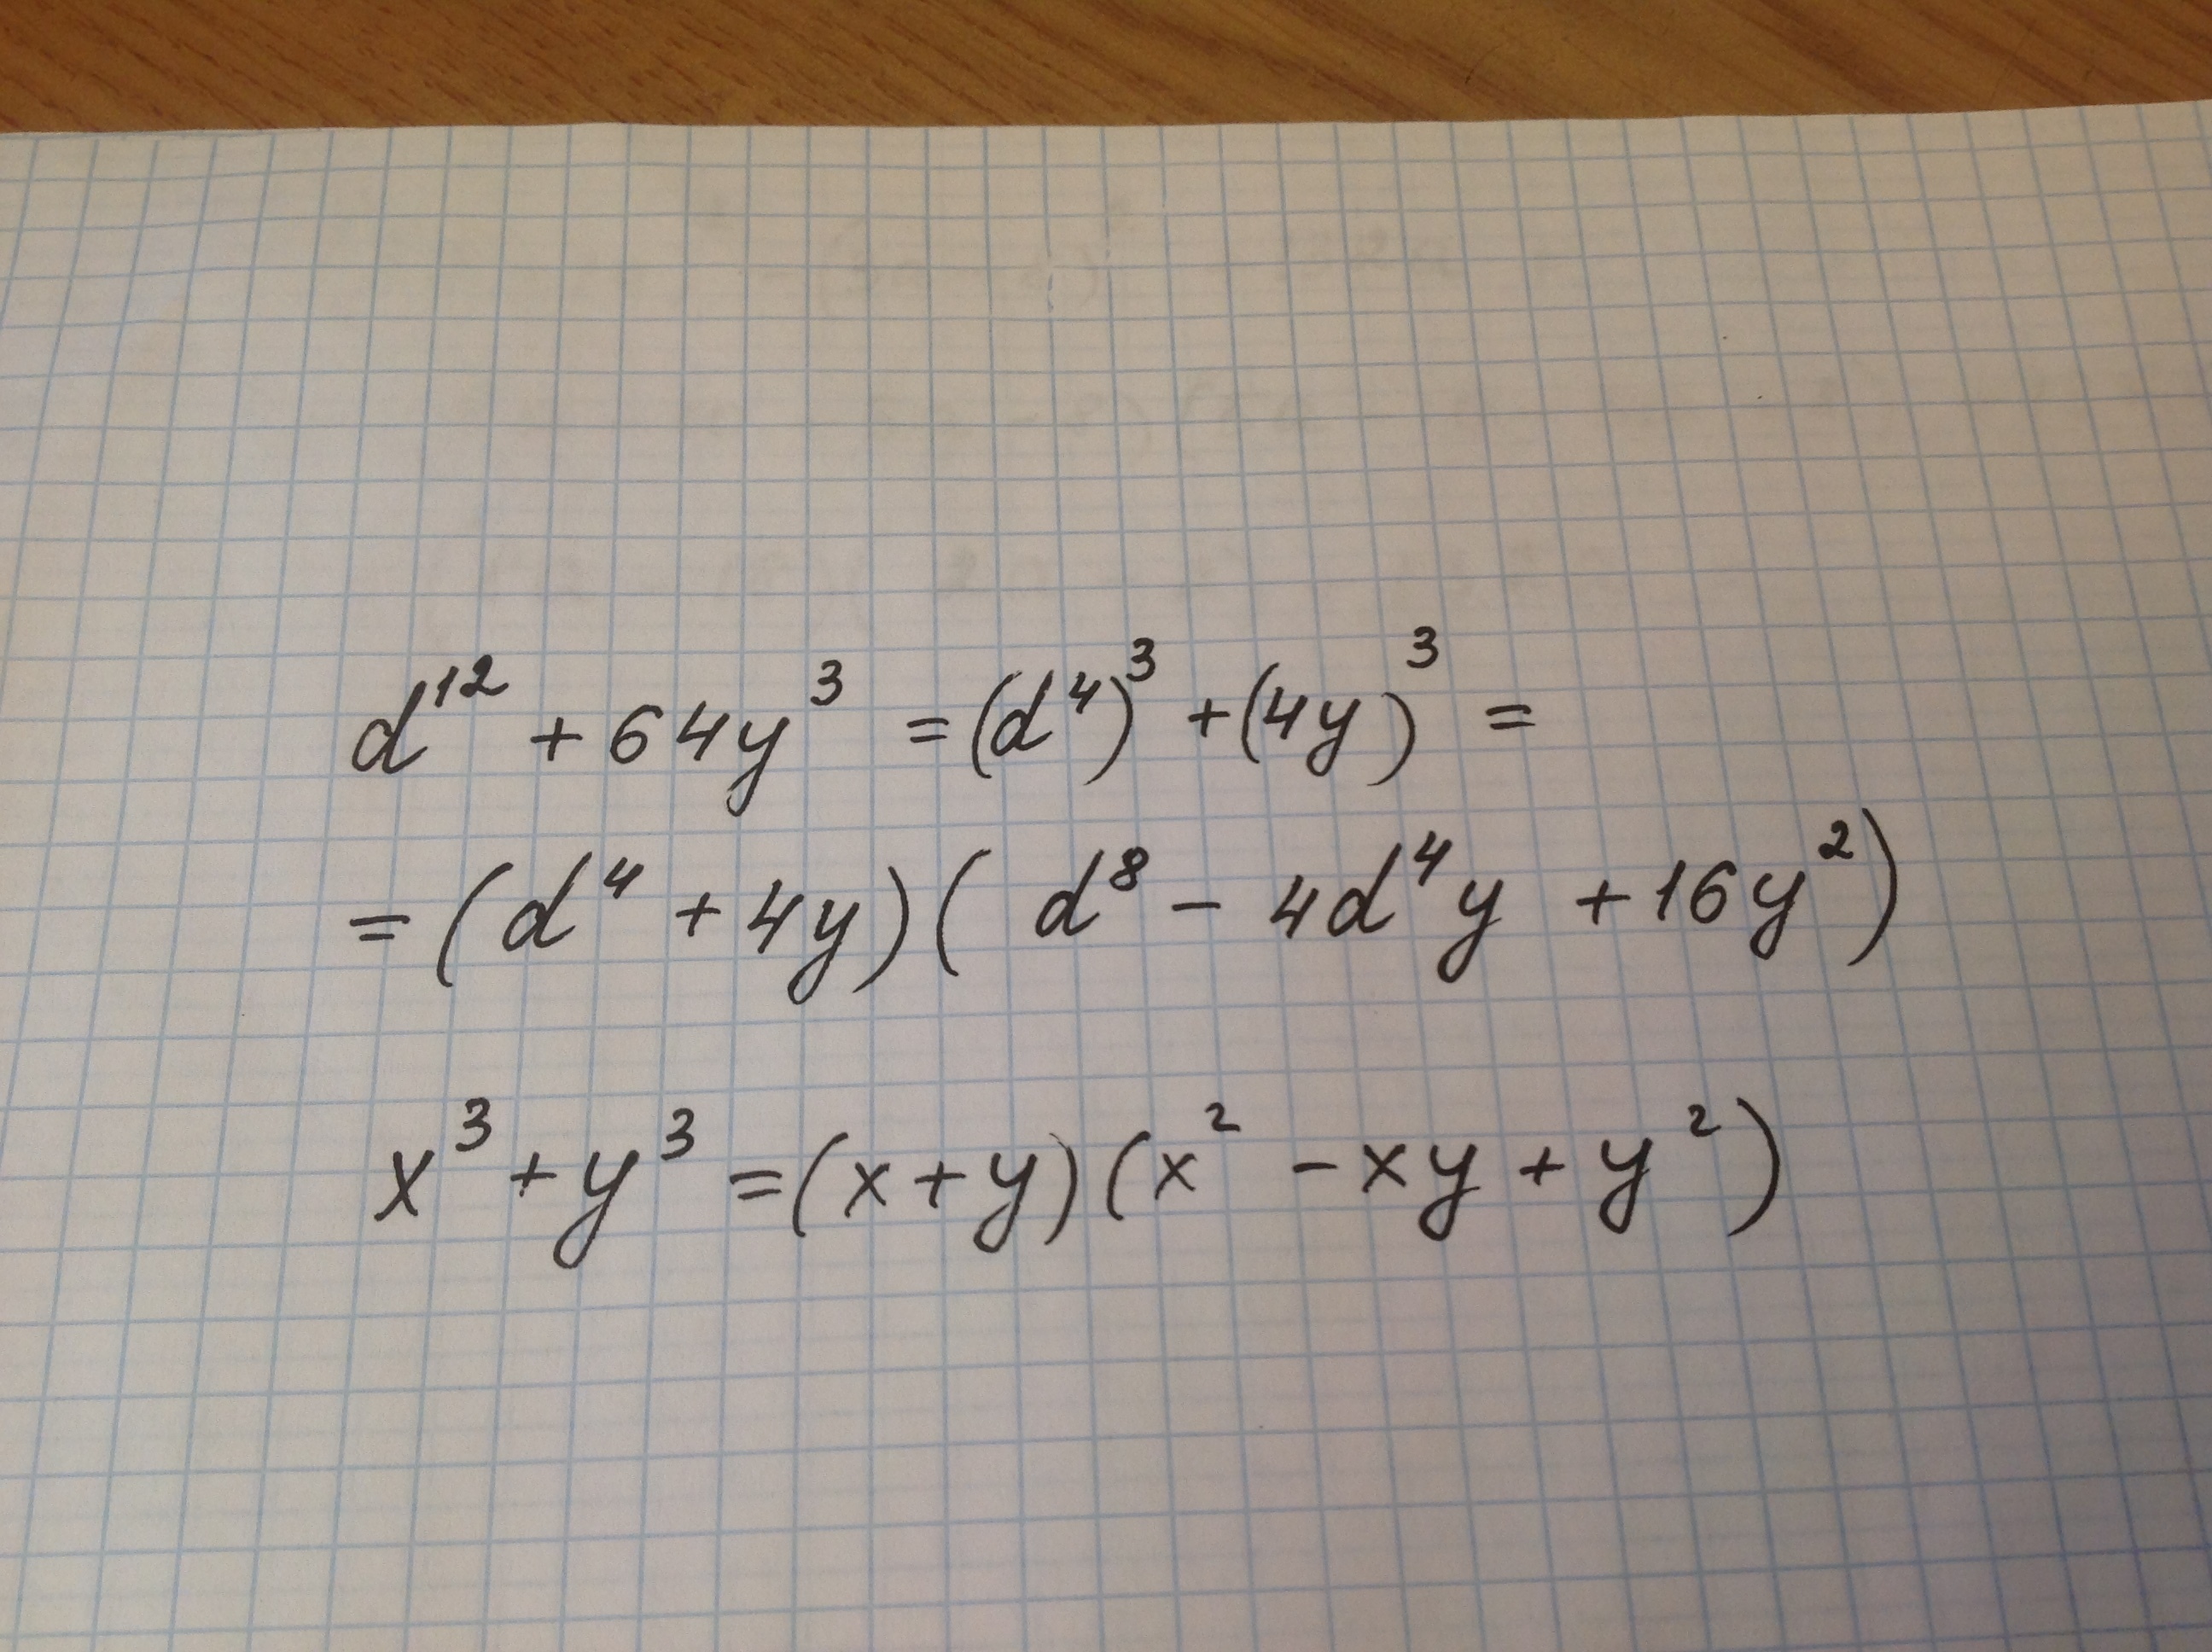 d¹² + 64y³ = (d⁴)³ + (4y)³ =
= (d⁴ + 4y)(d⁸ − 4d⁴y + 16y²)
x³ + y³ = (x + y)(x² − xy + y²)